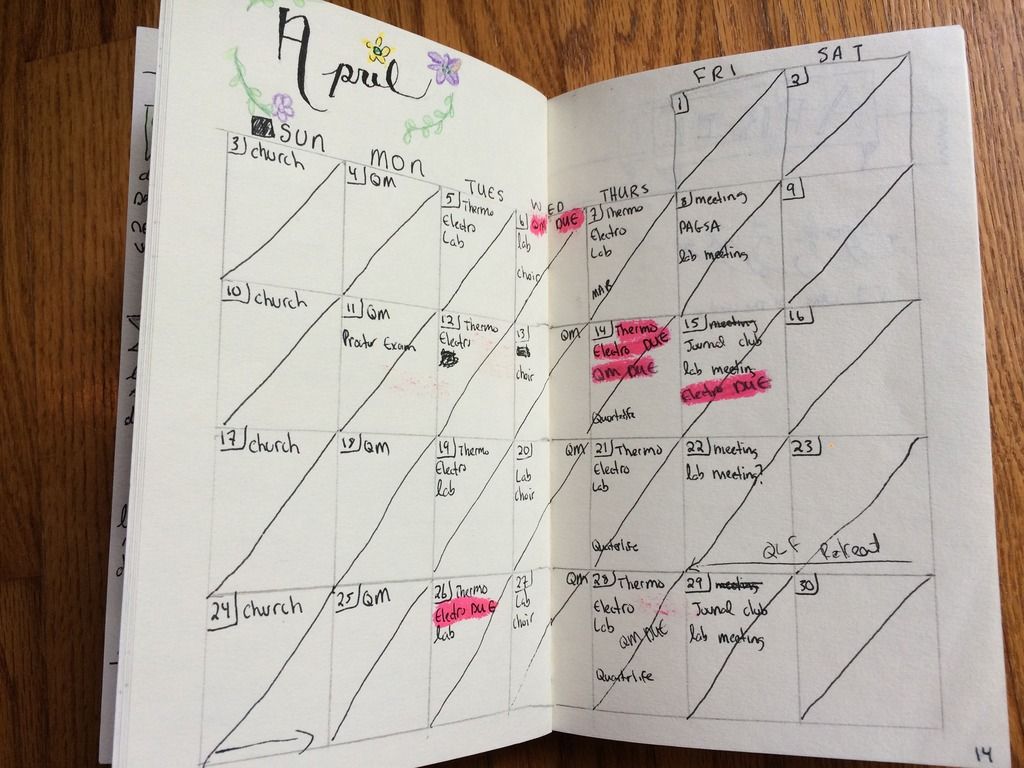 April
SUN
MON
TUES
WED
THURS
FRI
SAT
1
2
3 church
4 QM
5 Thermo
Electro
Lab
6 QM DUE
lab
choir
7 Thermo
Electro
Lab
MAB
8 meeting
PAGSA
lab meeting
9
10 church
11 QM
Proctor Exam
12 Thermo
Electro
13 QM
choir
14 Thermo
Electro DUE
QM DUE
Quarterlife
15 meeting
Journal club
lab meeting
Electro DUE
16
17 church
18 QM
19 Thermo
Electro
lab
20 QM
Lab
choir
21 Thermo
Electro
Lab
Quaterlife
22 meeting
lab meeting?
23
QLF Retreat
24 church
25 QM
26 Thermo
Electro DUE
lab
27 QM
Lab
choir
28 Thermo
Electro
Lab
QM DUE
Quarterlife
29 meeting
Journal club
lab meeting
30
14